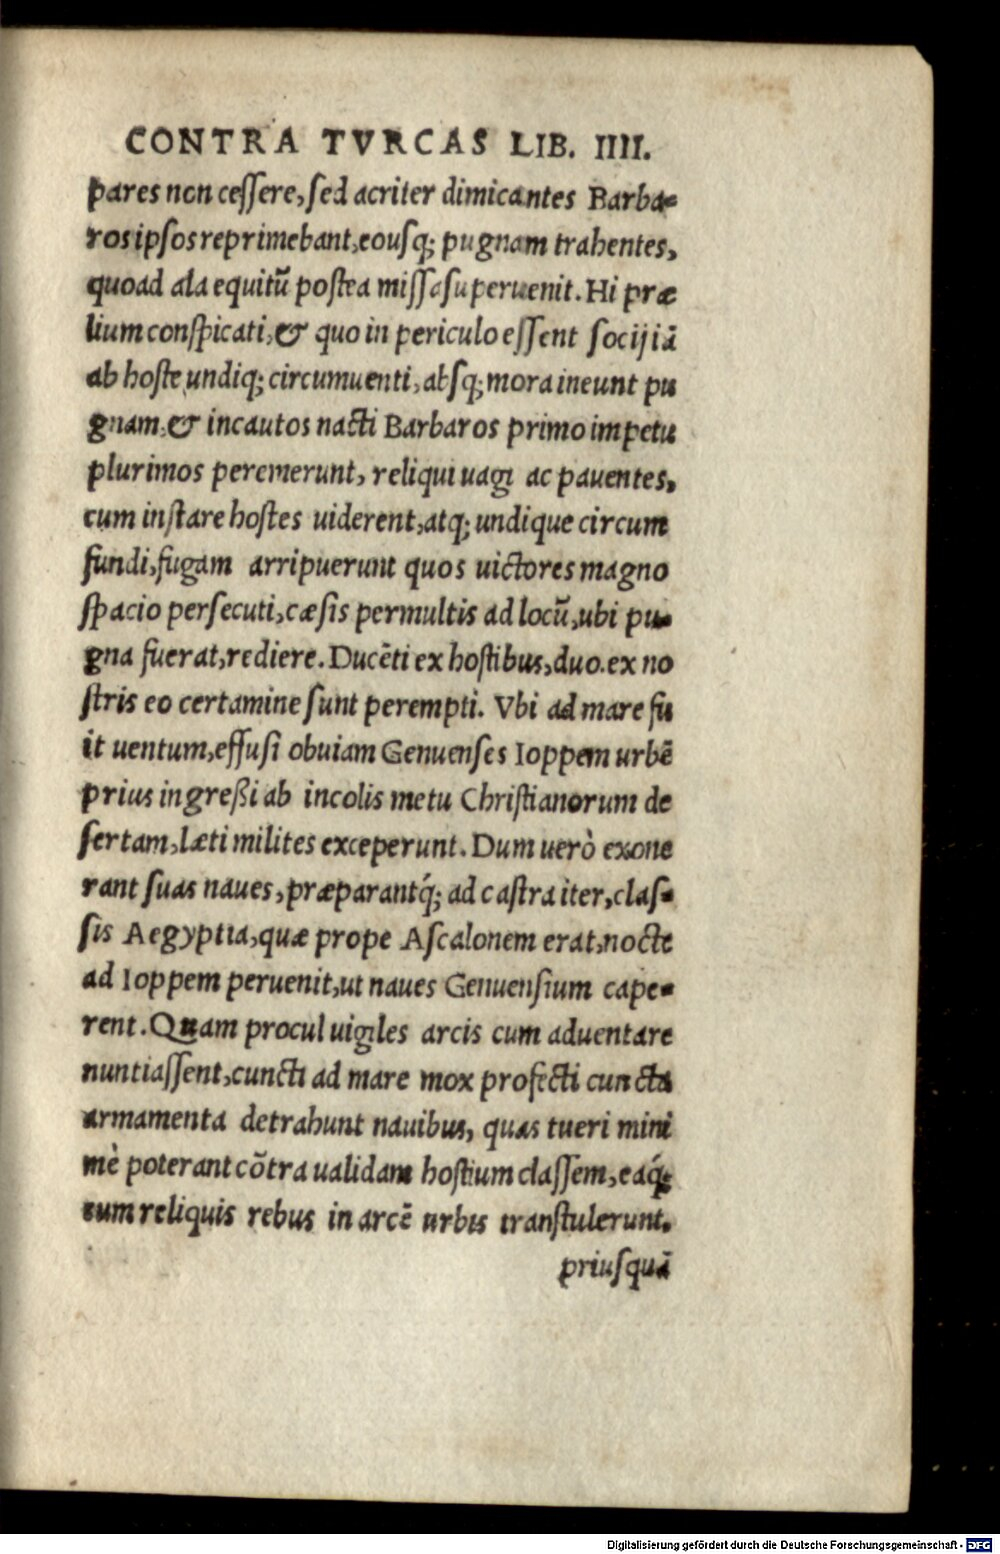 CONTRA TVRCAS LIB. IIII.
pares non ceſſere, ſed acriter dimicantes Barba-
ros ipſos reprimebant, eouſq; pugnam trahentes,
quoad ala equitũ poſtea miſſa ſuperuenit. Hi præ
lium conſpicati, & quo in periculo eſſent ſocij iã
ab hoſte undiq; circumuenti, abſq; mora ineunt pu
gnam, & incautos nacti Barbaros primo impetu
plurimos peremerunt, reliqui uagi ac pauentes,
cum inſtare hoſtes uiderent, atq; undique circum
fundi, fugam arripuerunt quos uictores magno
ſpacio perſecuti, cæſis permultis ad locũ, ubi pu-
gna fuerat, rediere. Ducẽti ex hoſtibus, duo ex no
ſtris eo certamine ſunt perempti. Vbi ad mare fu
it uentum, effuſi obuiam Genuenſes Ioppem urbẽ
prius ingreßi ab incolis metu Chriſtianorum de
ſertam, læti milites exceperunt. Dum uerò exone
rant ſuas naues, præparantq́; ad caſtra iter, claſ-
ſis Aegyptia, quæ prope Aſcalonem erat, nocte
ad Ioppem peruenit, ut naues Genuenſium cape-
rent. Quam procul uigiles arcis cum aduentare
nuntiaſſent, cuncti ad mare mox profecti cuncta
armamenta detrahunt nauibus, quas tueri mini
mè poterant cõtra ualidam hoſtium claſſem, eaq́;
cum reliquis rebus in arcẽ urbis tranſtulerunt.
priuſquã
Digitalisierung gefördert durch die Deutsche Forschungsgemeinschaft - DFG